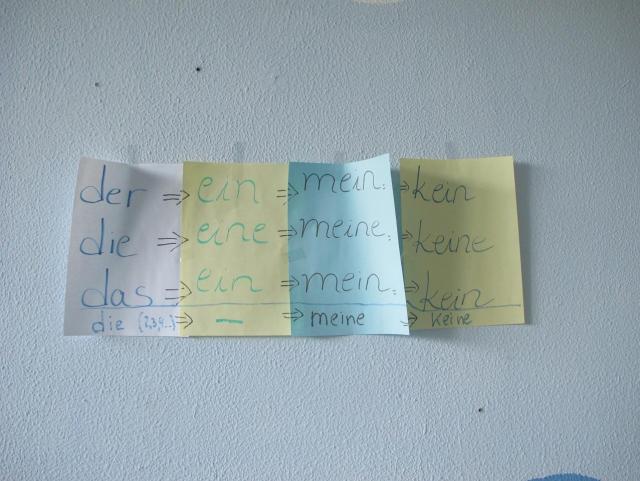 der ⇒ ein ⇒ mein ⇒ kein
die ⇒ eine ⇒ meine ⇒ keine
das ⇒ ein ⇒ mein ⇒ kein
die (2,3,4..) ⇒ — ⇒ meine ⇒ keine